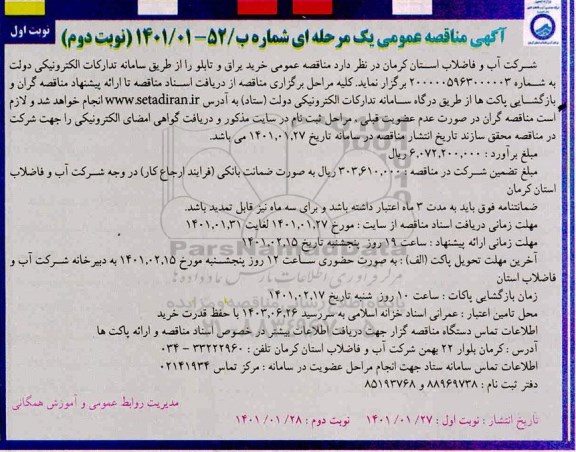 نوبت اول
آگهی مناقصه عمومی یک مرحله ای شماره ب/۵۲-۱۴۰۱/۰۱ (نوبت دوم)
شرکت آب و فاضلاب استان کرمان در نظر دارد مناقصه عمومی خرید یراق و تابلو را از طریق سامانه تدارکات الکترونیکی دولت
به شماره ۲۰۰۰۰۰۵۹۶۳۰۰۰۰۰۳ برگزار نماید. کلیه مراحل برگزاری مناقصه از دریافت اسناد مناقصه تا ارائه پیشنهاد مناقصه گران و
بازگشایی پاکت ها از طریق درگاه سامانه تدارکات الکترونیکی دولت (ستاد) به آدرس www.setadiran.ir انجام خواهد شد و لازم
است مناقصه گران در صورت عدم عضویت قبلی ، مراحل ثبت نام در سایت مذکور و دریافت گواهی امضای الکترونیکی را جهت شرکت
در مناقصه محقق سازند تاریخ انتشار مناقصه در سامانه تاریخ ۱۴۰۱،۰۱،۲۷ می باشد.
مبلغ برآورد : ۶،۰۷۲،۲۰۰،۰۰۰ ریال
مبلغ تضمین شرکت در مناقصه : ۳۰۳،۶۱۰،۰۰۰ ریال به صورت ضمانت بانکی (فرایند ارجاع کار) در وجه شرکت آب و فاضلاب
استان کرمان
ضمانتنامه فوق باید به مدت ۳ ماه اعتبار داشته باشد و برای سه ماه نیز قابل تمدید باشد.
مهلت زمانی دریافت اسناد مناقصه از سایت : مورخ ۱۴۰۱،۰۱،۲۷ لغایت ۱۴۰۱،۰۱،۳۱
مهلت زمانی ارائه پیشنهاد : ساعت ۱۹ روز پنجشنبه تاریخ ۱۴۰۱،۰۲،۱۵
آخرین مهلت تحویل پاکت (الف) : به صورت حضوری ساعت ۱۲ روز پنجشنبه مورخ ۱۴۰۱،۰۲،۱۵ به دبیرخانه شرکت آب و
فاضلاب استان
زمان بازگشایی پاکات : ساعت ۱۰ روز شنبه تاریخ ۱۴۰۱،۰۲،۱۷
محل تامین اعتبار : عمرانی اسناد خزانه اسلامی به سررسید ۱۴۰۳،۰۶،۲۶ با حفظ قدرت خرید
اطلاعات تماس دستگاه مناقصه گزار جهت دریافت اطلاعات بیشتر در خصوص اسناد مناقصه و ارائه پاکت ها
آدرس : کرمان بلوار ۲۲ بهمن شرکت آب و فاضلاب استان کرمان تلفن : ۳۳۲۲۲۹۶۰ - ۰۳۴
اطلاعات تماس سامانه ستاد جهت انجام مراحل عضویت در سامانه : مرکز تماس ۰۲۱۴۱۹۳۴
دفتر ثبت نام : ۸۸۹۶۹۷۳۸ و ۸۵۱۹۳۷۶۸
مدیریت روابط عمومی و آموزش همگانی
تاریخ انتشار : نوبت اول : ۲۷/ ۰۱/ ۱۴۰۱ نوبت دوم : ۲۸/ ۰۱/ ۱۴۰۱